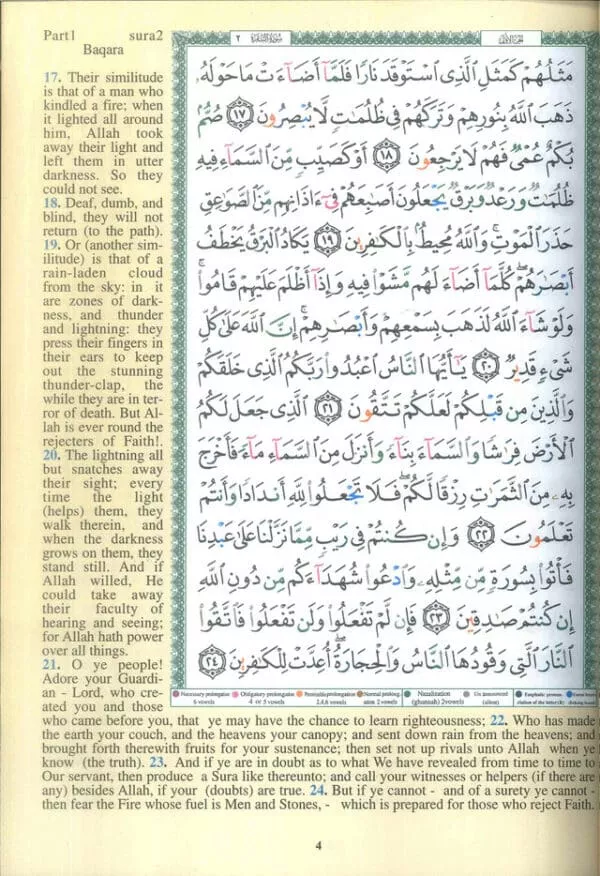 Part1 sura2
Baqara
17. Their similitude
is that of a man who
kindled a fire; when
it lighted all around
him, Allah took
away their light and
left them in utter
darkness. So they
could not see.
18. Deaf, dumb, and
blind, they will not
return (to the path).
19. Or (another sim-
ilitude) is that of a
rain-laden cloud
from the sky: in it
are zones of dark-
ness, and thunder
and lightning: they
press their fingers in
their ears to keep
out the stunning
thunder-clap, the
while they are in ter-
ror of death. But Al-
lah is ever round the
rejecters of Faith!.
20. The lightning all
but snatches away
their sight; every
time the light
(helps) them, they
walk therein, and
when the darkness
grows on them, they
stand still. And if
Allah willed, He
could take away
their faculty of
hearing and seeing;
for Allah hath power
over all things.
21. O ye people!
Adore your Guardi-
an - Lord, who cre-
ated you and those
who came before you, that ye may have the chance to learn righteousness; 22. Who has made
the earth your couch, and the heavens your canopy; and sent down rain from the heavens; and
brought forth therewith fruits for your sustenance; then set not up rivals unto Allah when ye
know (the truth). 23. And if ye are in doubt as to what We have revealed from time to time to
Our servant, then produce a Sura like thereunto; and call your witnesses or helpers (if there are
any) besides Allah, if your (doubts) are true. 24. But if ye cannot - and of a surety ye cannot -
then fear the Fire whose fuel is Men and Stones, - which is prepared for those who reject Faith.
٢ سُورَةُ البَقَرَة الجُزءُ الأَوَّل
مَثَلُهُمْ كَمَثَلِ ٱلَّذِى ٱسْتَوْقَدَ نَارًا فَلَمَّآ أَضَآءَتْ مَا حَوْلَهُۥ
ذَهَبَ ٱللَّهُ بِنُورِهِمْ وَتَرَكَهُمْ فِى ظُلُمَٰتٍ لَّا يُبْصِرُونَ ١٧ صُمٌّۢ
بُكْمٌ عُمْىٌ فَهُمْ لَا يَرْجِعُونَ ١٨ أَوْ كَصَيِّبٍ مِّنَ ٱلسَّمَآءِ فِيهِ
ظُلُمَٰتٌ وَرَعْدٌ وَبَرْقٌ يَجْعَلُونَ أَصَٰبِعَهُمْ فِىٓ ءَاذَانِهِم مِّنَ ٱلصَّوَٰعِقِ
حَذَرَ ٱلْمَوْتِ ۚ وَٱللَّهُ مُحِيطٌۢ بِٱلْكَٰفِرِينَ ١٩ يَكَادُ ٱلْبَرْقُ يَخْطَفُ
أَبْصَٰرَهُمْ ۖ كُلَّمَآ أَضَآءَ لَهُم مَّشَوْا۟ فِيهِ وَإِذَآ أَظْلَمَ عَلَيْهِمْ قَامُوا۟ ۚ
وَلَوْ شَآءَ ٱللَّهُ لَذَهَبَ بِسَمْعِهِمْ وَأَبْصَٰرِهِمْ ۚ إِنَّ ٱللَّهَ عَلَىٰ كُلِّ
شَىْءٍ قَدِيرٌ ٢٠ يَٰٓأَيُّهَا ٱلنَّاسُ ٱعْبُدُوا۟ رَبَّكُمُ ٱلَّذِى خَلَقَكُمْ
وَٱلَّذِينَ مِن قَبْلِكُمْ لَعَلَّكُمْ تَتَّقُونَ ٢١ ٱلَّذِى جَعَلَ لَكُمُ
ٱلْأَرْضَ فِرَٰشًا وَٱلسَّمَآءَ بِنَآءً وَأَنزَلَ مِنَ ٱلسَّمَآءِ مَآءً فَأَخْرَجَ
بِهِۦ مِنَ ٱلثَّمَرَٰتِ رِزْقًا لَّكُمْ ۖ فَلَا تَجْعَلُوا۟ لِلَّهِ أَندَادًا وَأَنتُمْ
تَعْلَمُونَ ٢٢ وَإِن كُنتُمْ فِى رَيْبٍ مِّمَّا نَزَّلْنَا عَلَىٰ عَبْدِنَا
فَأْتُوا۟ بِسُورَةٍ مِّن مِّثْلِهِۦ وَٱدْعُوا۟ شُهَدَآءَكُم مِّن دُونِ ٱللَّهِ
إِن كُنتُمْ صَٰدِقِينَ ٢٣ فَإِن لَّمْ تَفْعَلُوا۟ وَلَن تَفْعَلُوا۟ فَٱتَّقُوا۟
ٱلنَّارَ ٱلَّتِى وَقُودُهَا ٱلنَّاسُ وَٱلْحِجَارَةُ ۖ أُعِدَّتْ لِلْكَٰفِرِينَ ٢٤
Necessary prolongation Obligatory prolongation Permissible prolongation Normal prolong- Nazalization Un announced Emphatic pronun-
6 vowels 4 or 5 vowels 2,4,6 vowels ation 2 vowels (ghunnah) 2 vowels (silent) ciation of the letter (R)
4